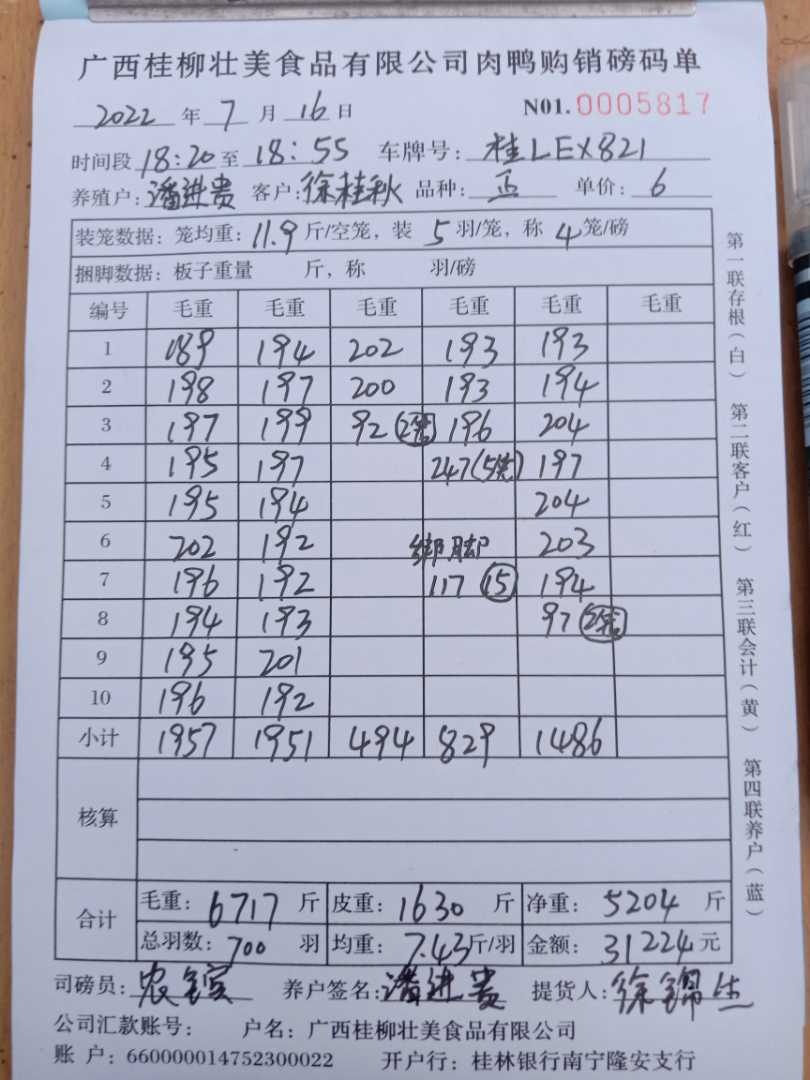 广西桂柳壮美食品有限公司肉鸭购销磅码单
2022 年 7 月 16 日 N01.0005817
时间段 18:20 至 18:55 车牌号: 桂LEX821
养殖户: 潘进贵 客户: 徐桂秋 品种: 正 单价: 6
装笼数据: 笼均重: 11.9 斤/空笼, 装 5 羽/笼, 称 4 笼/磅
捆脚数据: 板子重量 斤, 称 羽/磅
编号 毛重 毛重 毛重 毛重 毛重 毛重
1 189 194 202 193 193
2 198 197 200 193 194
3 197 199 92(2笼) 196 204
4 195 197 247(5笼) 197
5 195 194 204
6 202 192 绑脚 203
7 196 192 117 15 194
8 194 193 97(2笼)
9 195 201
10 196 192
小计 1957 1951 494 829 1486
核算
合计
毛重: 6717 斤 皮重: 1630 斤 净重: 5204 斤
总羽数: 700 羽 均重: 7.43 斤/羽 金额: 31224 元
司磅员: 农 养户签名: 潘进贵 提货人: 徐锦
公司汇款账号: 户名: 广西桂柳壮美食品有限公司
账 户: 660000014752300022 开户行: 桂林银行南宁隆安支行
第一联存根(白)
第二联客户(红)
第三联会计(黄)
第四联养户(蓝)